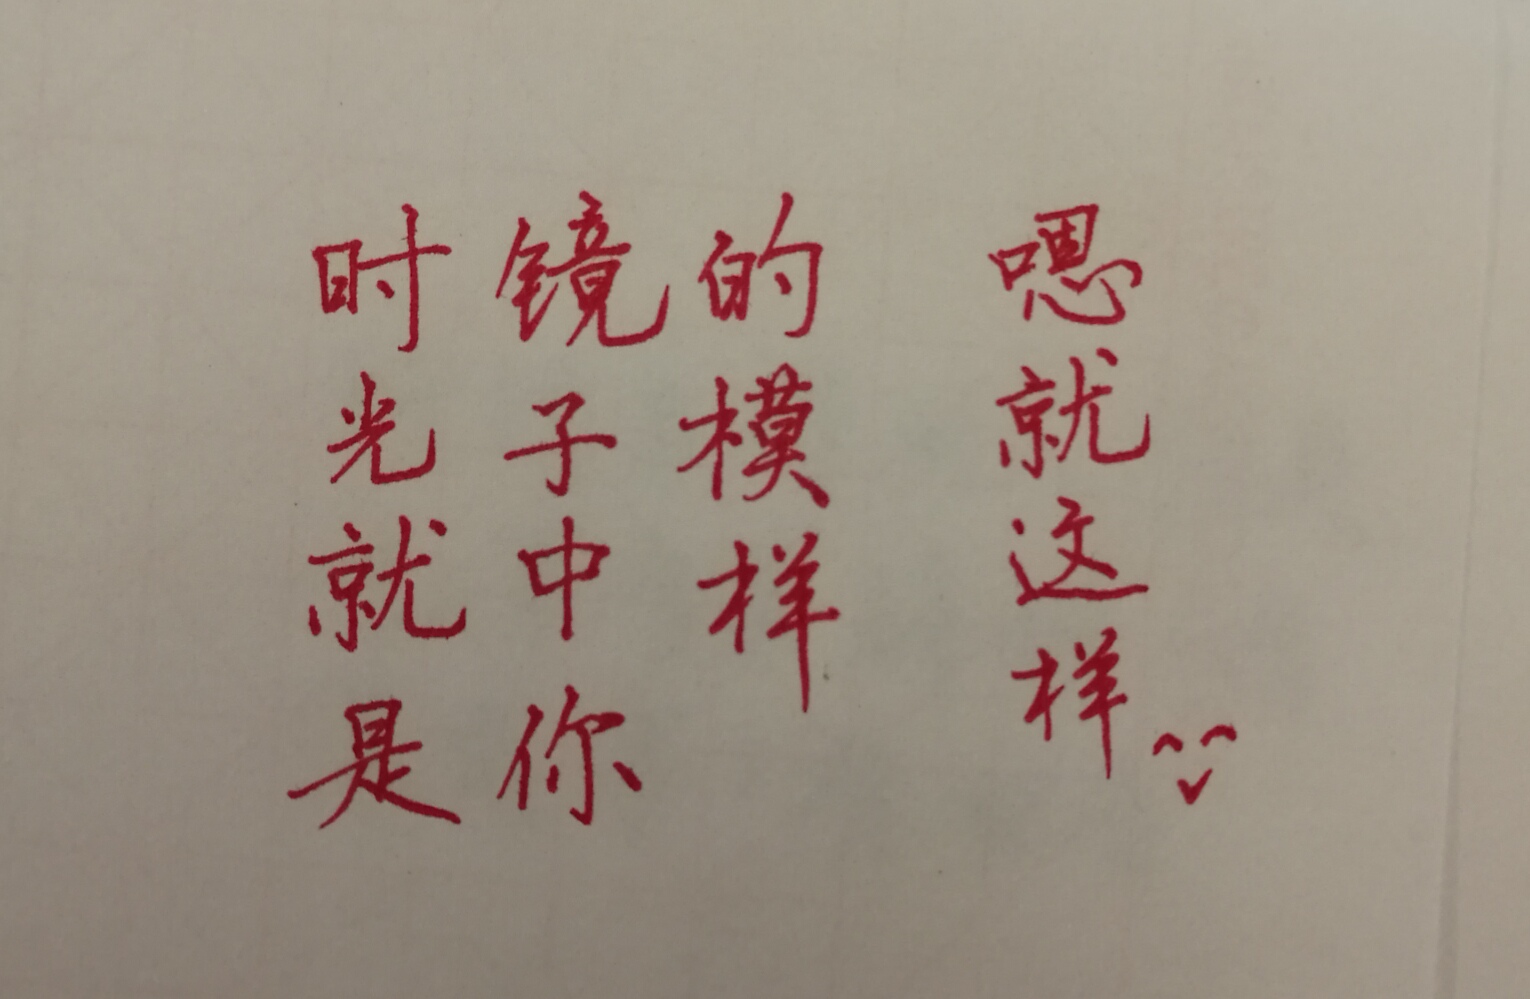 时光就是
镜子中你
的模样
嗯就这样